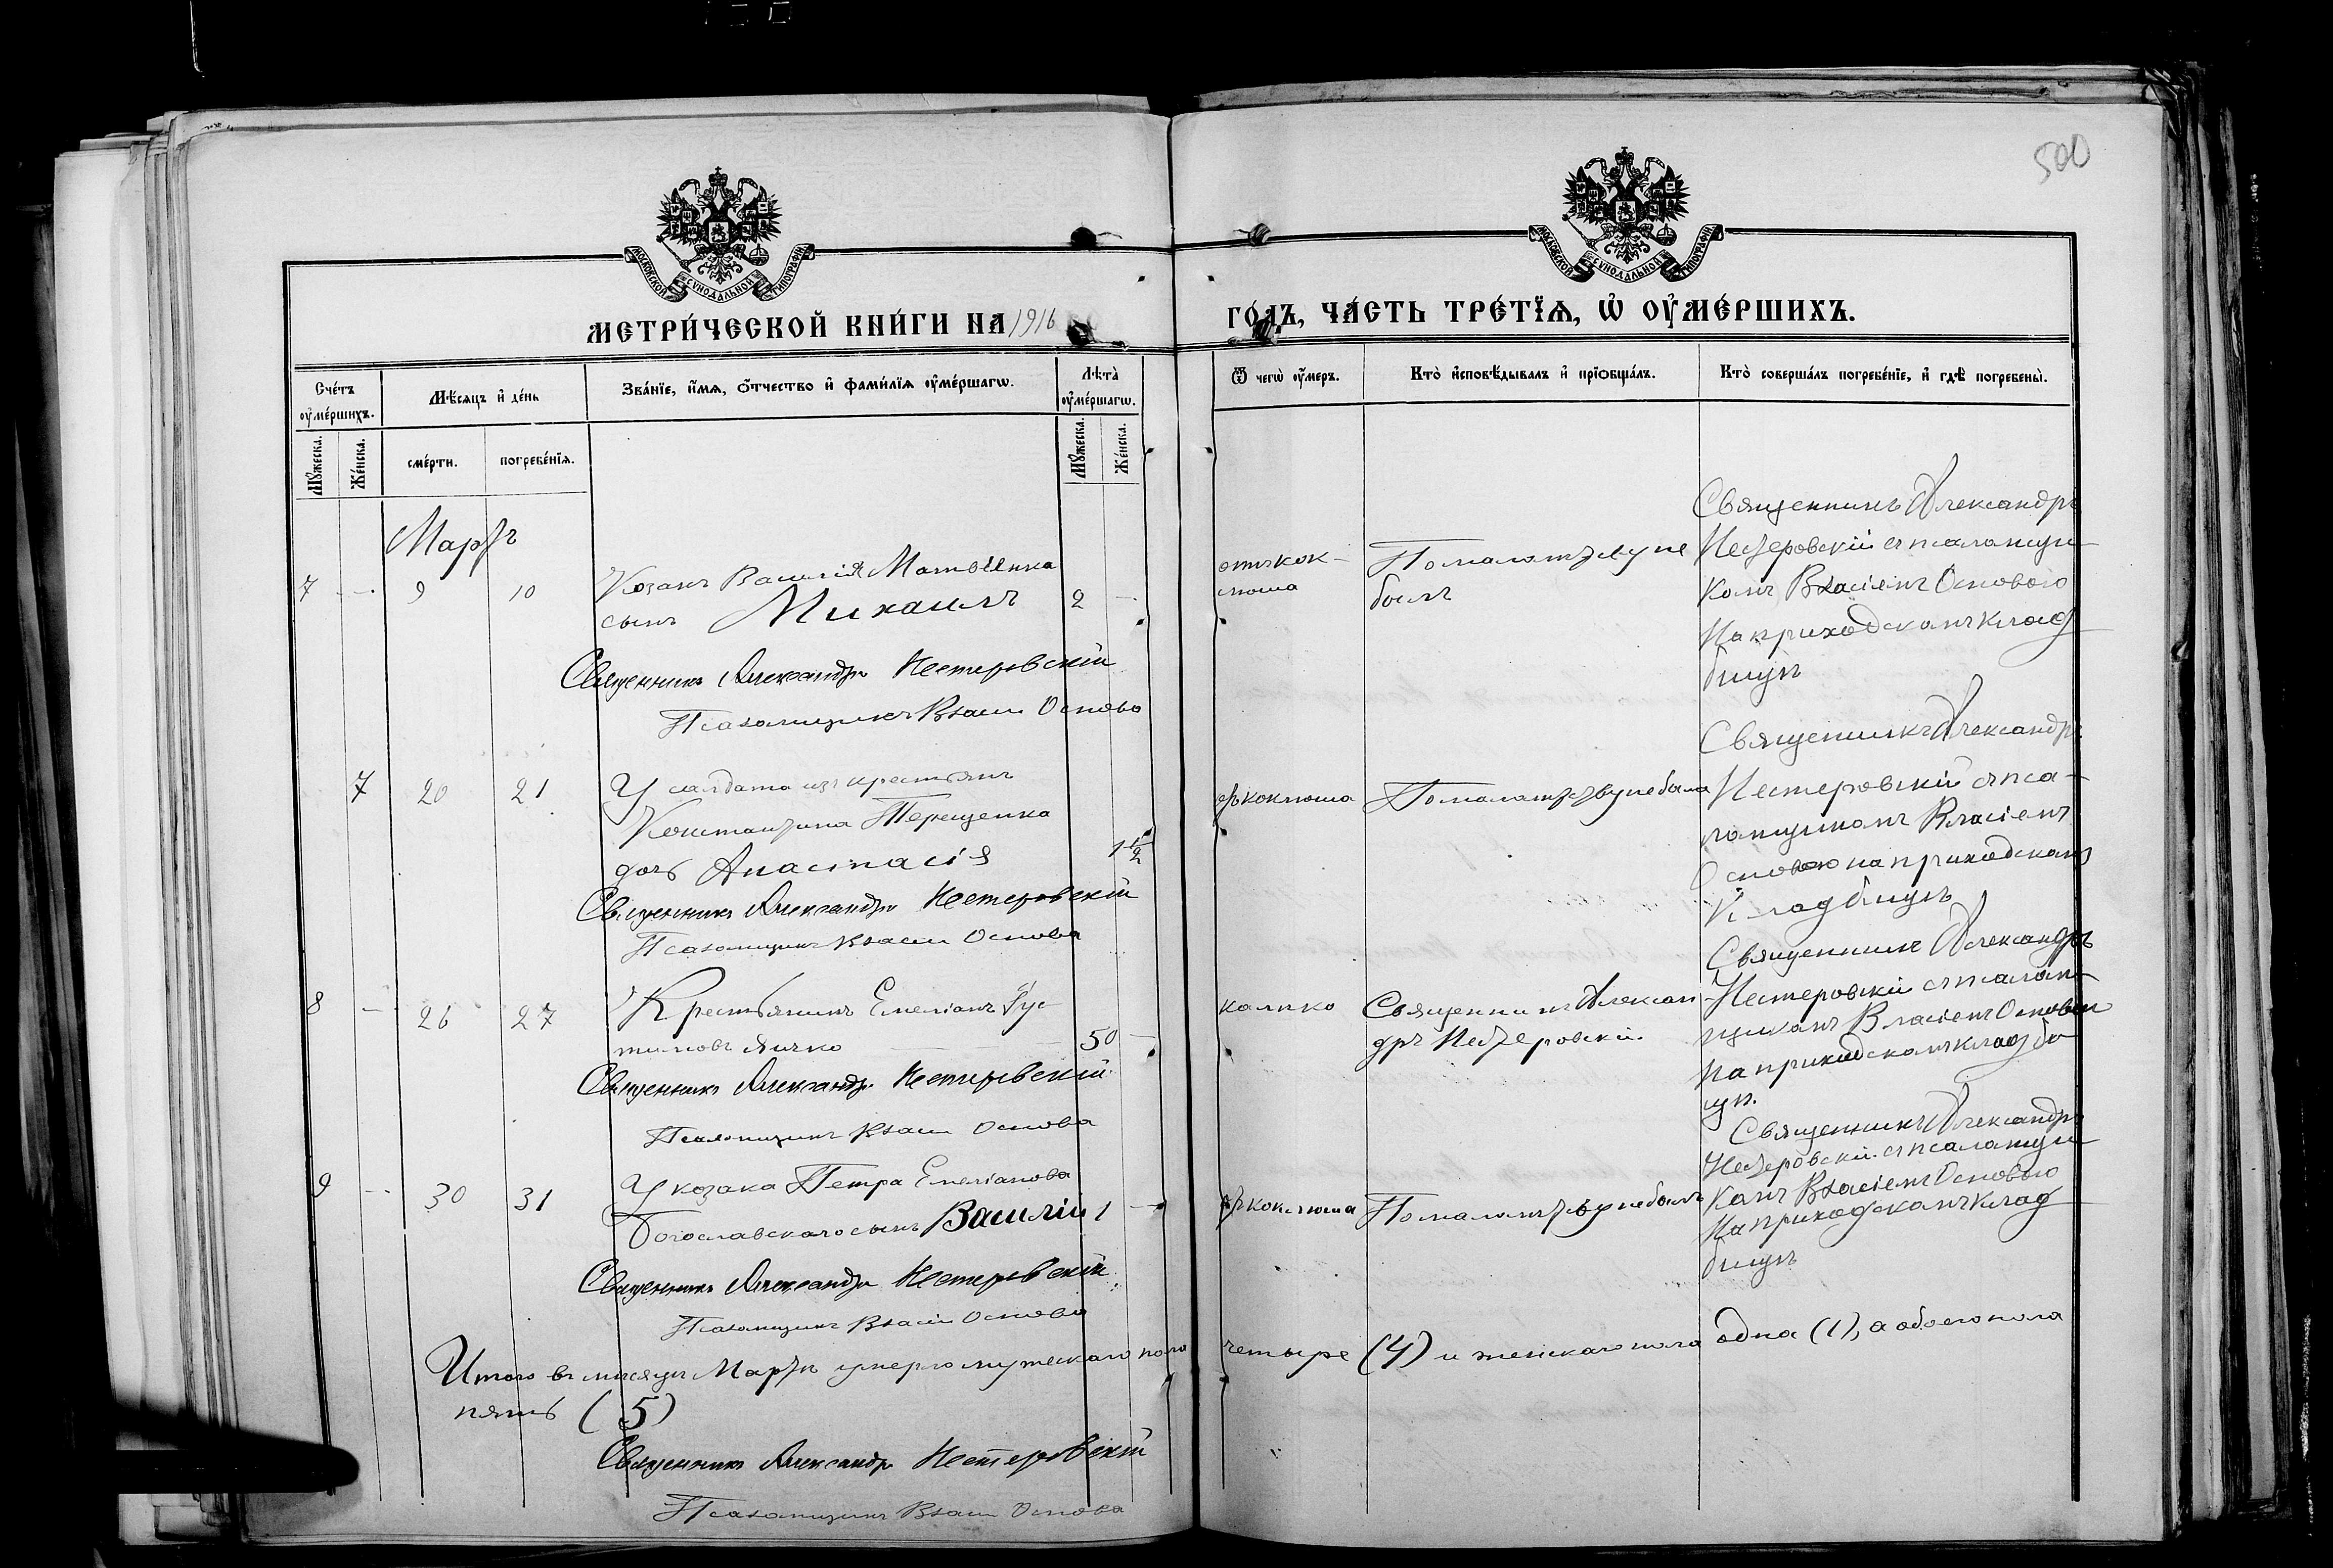 500
МОСКОВСКОЙ СУНОДАЛЬНОЙ ТИПОГРАФІИ
МОСКОВСКОЙ СУНОДАЛЬНОЙ ТИПОГРАФІИ
МЕТРИ́ЧЕСКОЙ КНИ́ГИ НА 1916
ГО́ДЪ, ЧА́СТЬ ТРЕ́ТЇѦ, Ѡ҆ ОУ҆МЕ́РШИХЪ.
Сче́тъ оу҆ме́ршихъ.
Мѣ́сяцъ и҆ де́нь
Зва́нїе, и҆́мѧ, ѻ҆́тчество и҆ фами́лїѧ оу҆ме́ршагѡ.
Лѣта̀ оу҆ме́ршагѡ.
Ѿ чегѡ̀ оу҆́меръ.
Кто̀ и҆сповѣ́дывалъ и҆ прїѡбща́лъ.
Кто̀ соверша́лъ погребе́нїе, и҆ гдѣ̀ погребены̀.
Мꙋ́жеска.
Же́нска.
сме́рти.
погребе́нїѧ.
Мꙋ́жеска.
Же́нска.
Мартъ
7 - 9 10
Козакъ Василія Матвіенка
сынъ Михаилъ 2 -
отъ кок-
люша
По малолѣтству не
былъ
Священникъ Александръ
Нестеровскій съ псаломщи-
комъ Власіемъ Основою
На приходскомъ клад
бищѣ
Священникъ Александръ Нестеровскій
Псаломщикъ Власій Основа
7 20 21
У салдата изъ крестьянъ
Константина Терещенка
дочь Анастасія 1 1/2
отъ коклюша
По малолѣтству не была
Священникъ Александръ
Нестеровскій съ пса-
ломщикомъ Власіемъ
Основою на приходскомъ
Кладбищѣ
Священникъ Александръ Нестеровскій
Псаломщикъ Власій Основа
8 - 26 27
Крестьянинъ Емеліанъ Іус
тиновъ Ячко 50 -
Священникъ Алексан
дръ Нестеровскій.
Священникъ Александръ
Нестеровскій съ псалом-
щикомъ Власіемъ Основою
На приходскомъ кладби
щѣ.
Священникъ Александръ Нестеровскій
Псаломщикъ Власій Основа
9 - 30 31
У козака Петра Емеліанова
Богославскаго сынъ Василій 1 -
отъ коклюша
По малолѣтству не былъ
Священникъ Александръ
Нестеровскій съ псаломщи-
комъ Власіемъ Основою
На приходскомъ клад
бищѣ
Священникъ Александръ Нестеровскій
Псаломщикъ Власій Основа
Итого въ мѣсяцѣ Мартѣ умерло мужескаго пола четыре (4) и женскаго пола одна (1), а обоего пола
пять (5)
Священникъ Александръ Нестеровскій
Псаломщикъ Власій Основа